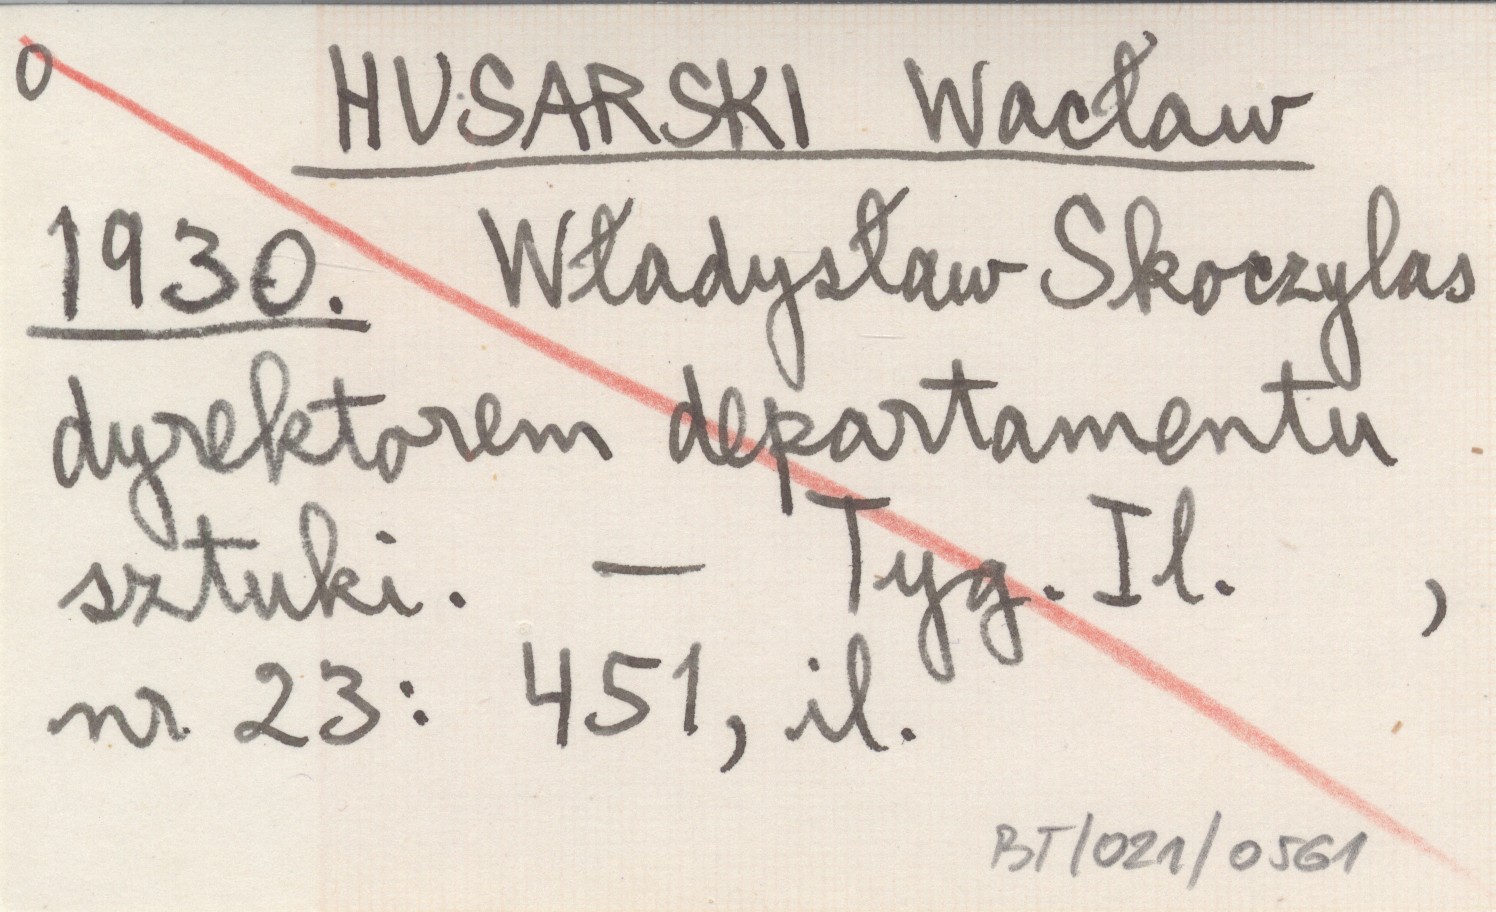 0 HUSARSKI Wacław
1930. Władysław Skoczylas
dyrektorem departamentu
sztuki. — Tyg. Il. ,
nr 23: 451, il.
BT/021/0561